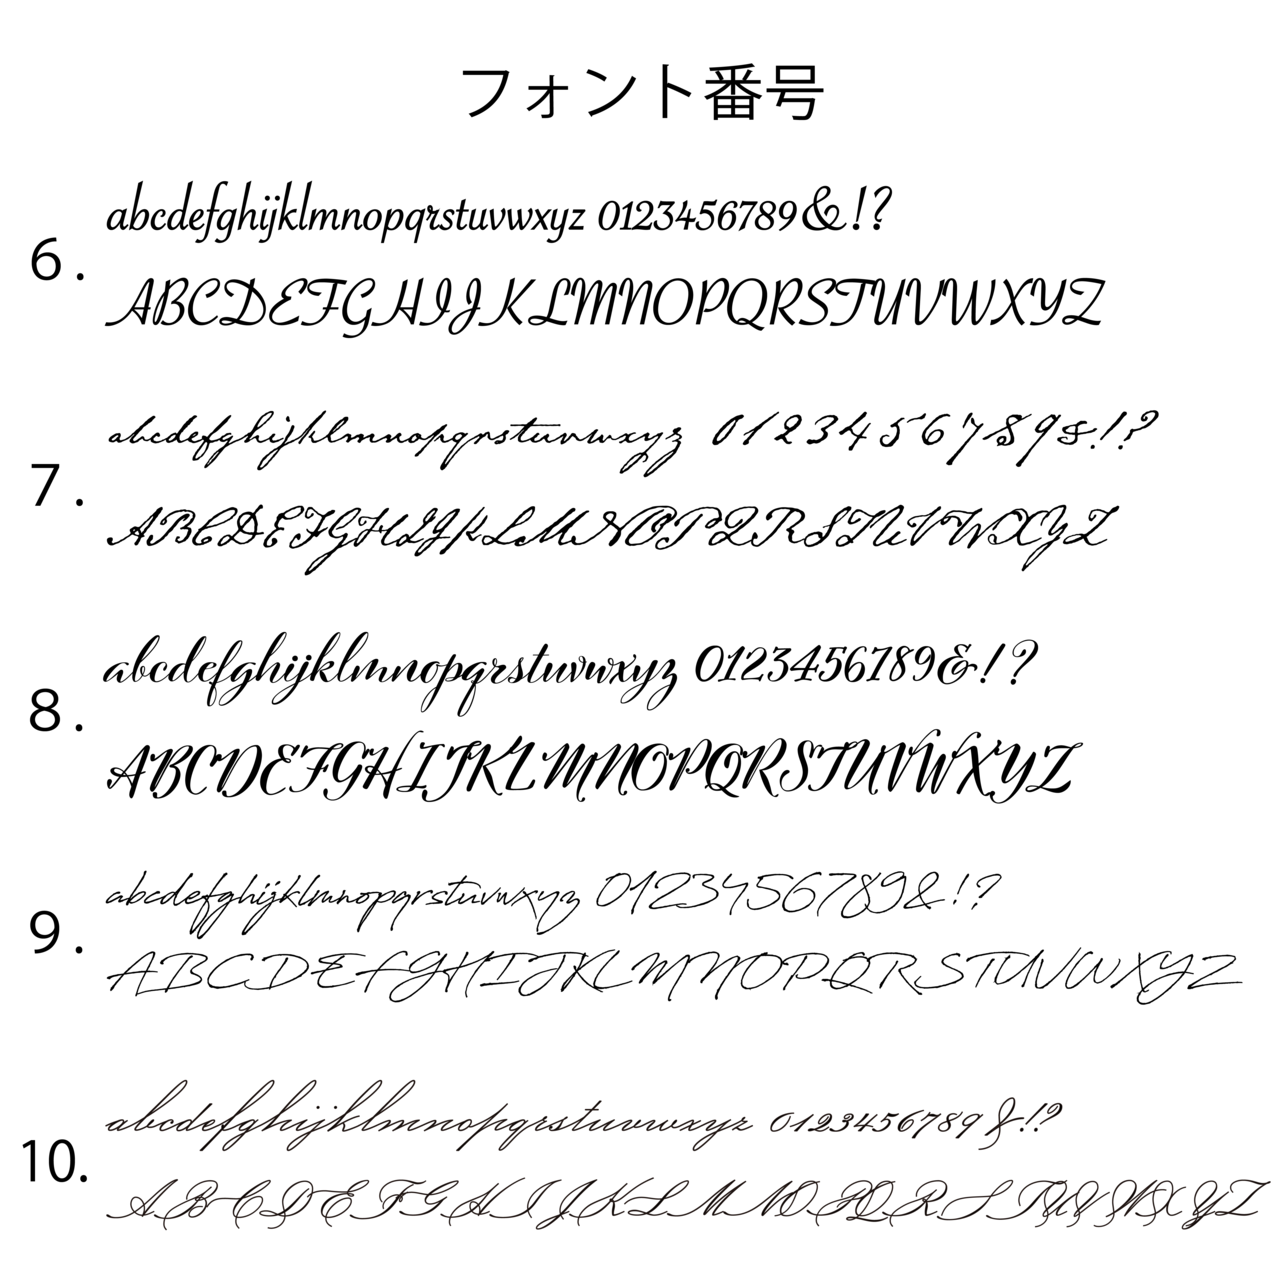 フォント番号
abcdefghijklmnopqrstuvwxyz 0123456789&!?
6.
ABCDEFGHIJKLMNOPQRSTUVWXYZ
abcdefghijklmnopqrstuvwxyz 0123456789&!?
7.
ABCDEFGHIJKLMNOPQRSTUVWXYZ
abcdefghijklmnopqrstuvwxyz 0123456789&!?
8.
ABCDEFGHIJKLMNOPQRSTUVWXYZ
abcdefghijklmnopqrstuvwxyz 0123456789&!?
9.
ABCDEFGHIJKLMNOPQRSTUVWXYZ
abcdefghijklmnopqrstuvwxyz 0123456789&!?
10.
ABCDEFGHIJKLMNOPQRSTUVWXYZ